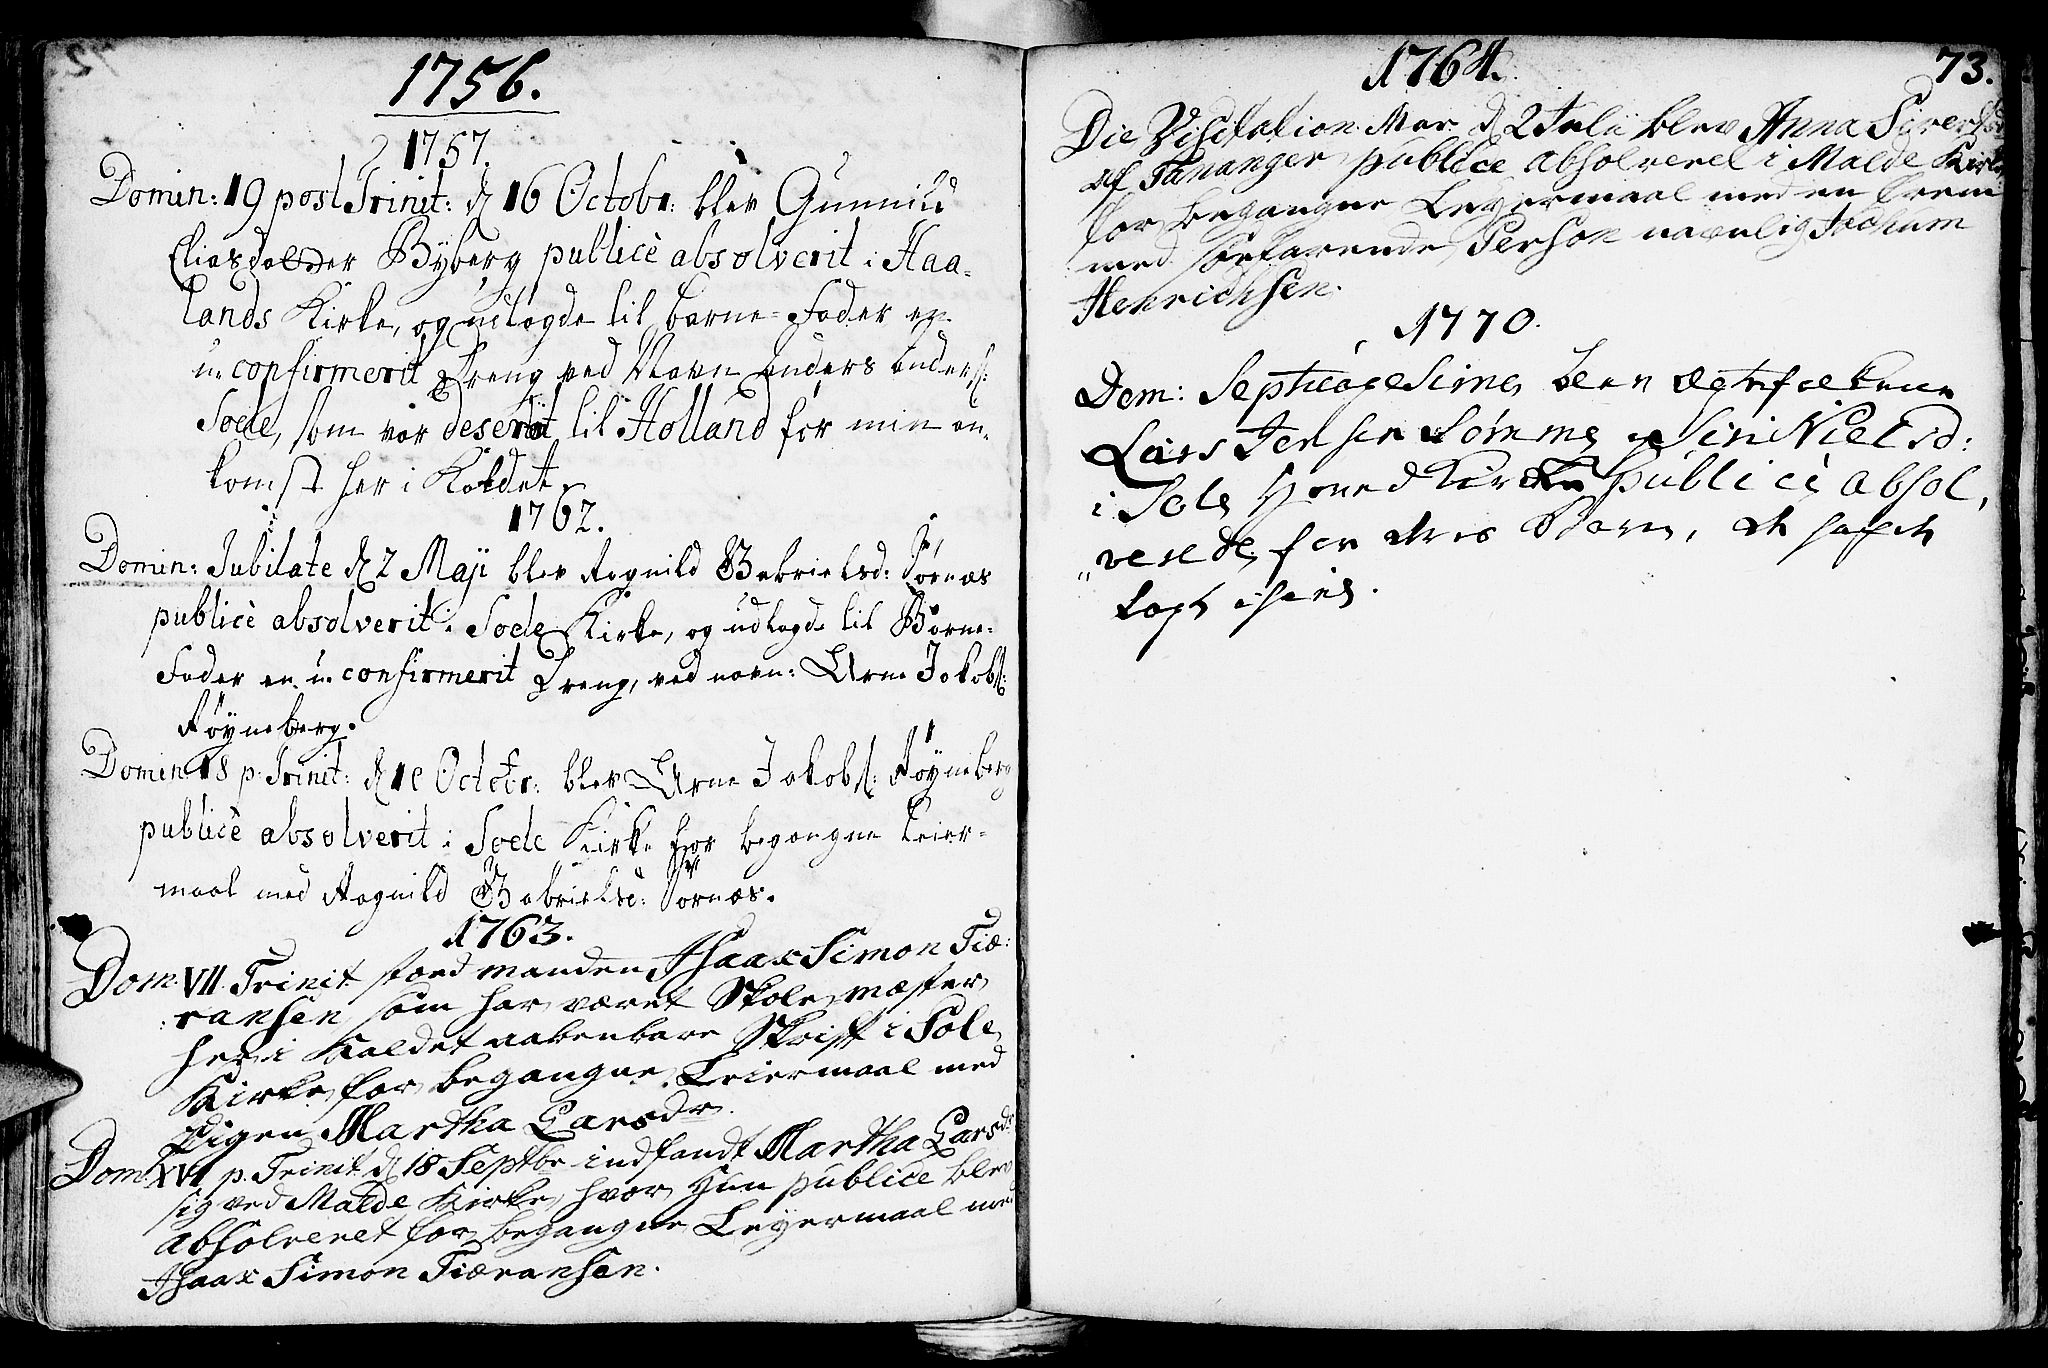 1756.
1757.
Domin: 19 post Trinit: d 16 Octobr: blev Gunnild
Eliasdotter Byberg publicè absolverit i Haa-
lands Kirke, og udlagde til barne-Fader en
u-confirmerit Dreng ved Navn Anders Anders:
Soele, som var deserit til Holland før min an-
komst her i Kaldet.
1762.
Domin: Jubilate d 2 Maji blev Ragnild Gabrielsd: Sørnæs
publicè absolverit i Soele Kirke, og udlagde til Børne-
Fader en u-confirmerit Dreng, ved navn: Arne Jokobs:
Røyneberg.
Domin 18 p. Trinit: d 10 Octobr: blev Arne Jakobs: Røyneberg
publicè absolverit i Soele Kirke for begangne Leier-
maal med Ragnild Gabrielsd: Sørnæs.
1763.
Dom. VII. Trinit stoed manden Isaax Simon Tiæ:
:ransen som har været Skole mæster
her i Kaldet aabenbare Skrift i Sole
Kirke for begangne Leiermaal med
Pigen Martha Larsdr.
Dom XVI p. Trinit d 18 Septbr indfandt Martha Larsdr
sig ved Malde Kirke, hvor Hun publice blev
absolveret for begangne Leyermaal med
Isaax Simon Tiæransen.
1764.
73.
Die Visitation. Mar. d 2 Julii blev Anna Siversdr
af Tananger publice absolveret i Malde Kirke
for begangne Leyermaal med en frem
med søefarende Person navnlig Jochum
Henrichsen.
1770.
Dom: Septuagesima blev Ægtefolkene
Lars Jensen Sømme og Siri Nielsd:
i Sole Hoved Kirke publicè absol,
„verede, for deres Barn,